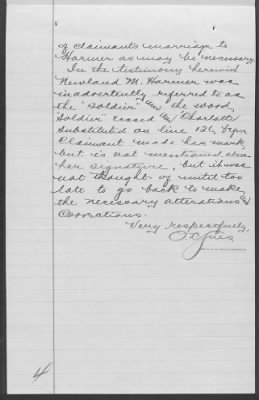 of claimant's marriage to
Harmer as may be necessary.
In the testimony herewith
Newland M. Harmer was
inadvertently referred to as
the "soldier" and the word
soldier" erased and "Charlotte
substituted on line 12,
Claimant made her mark
but is not mentioned above
her signature, but it was
not thought of until too
late to go back to make
the necessary alterations and
corrections.
Very respectfully,
4